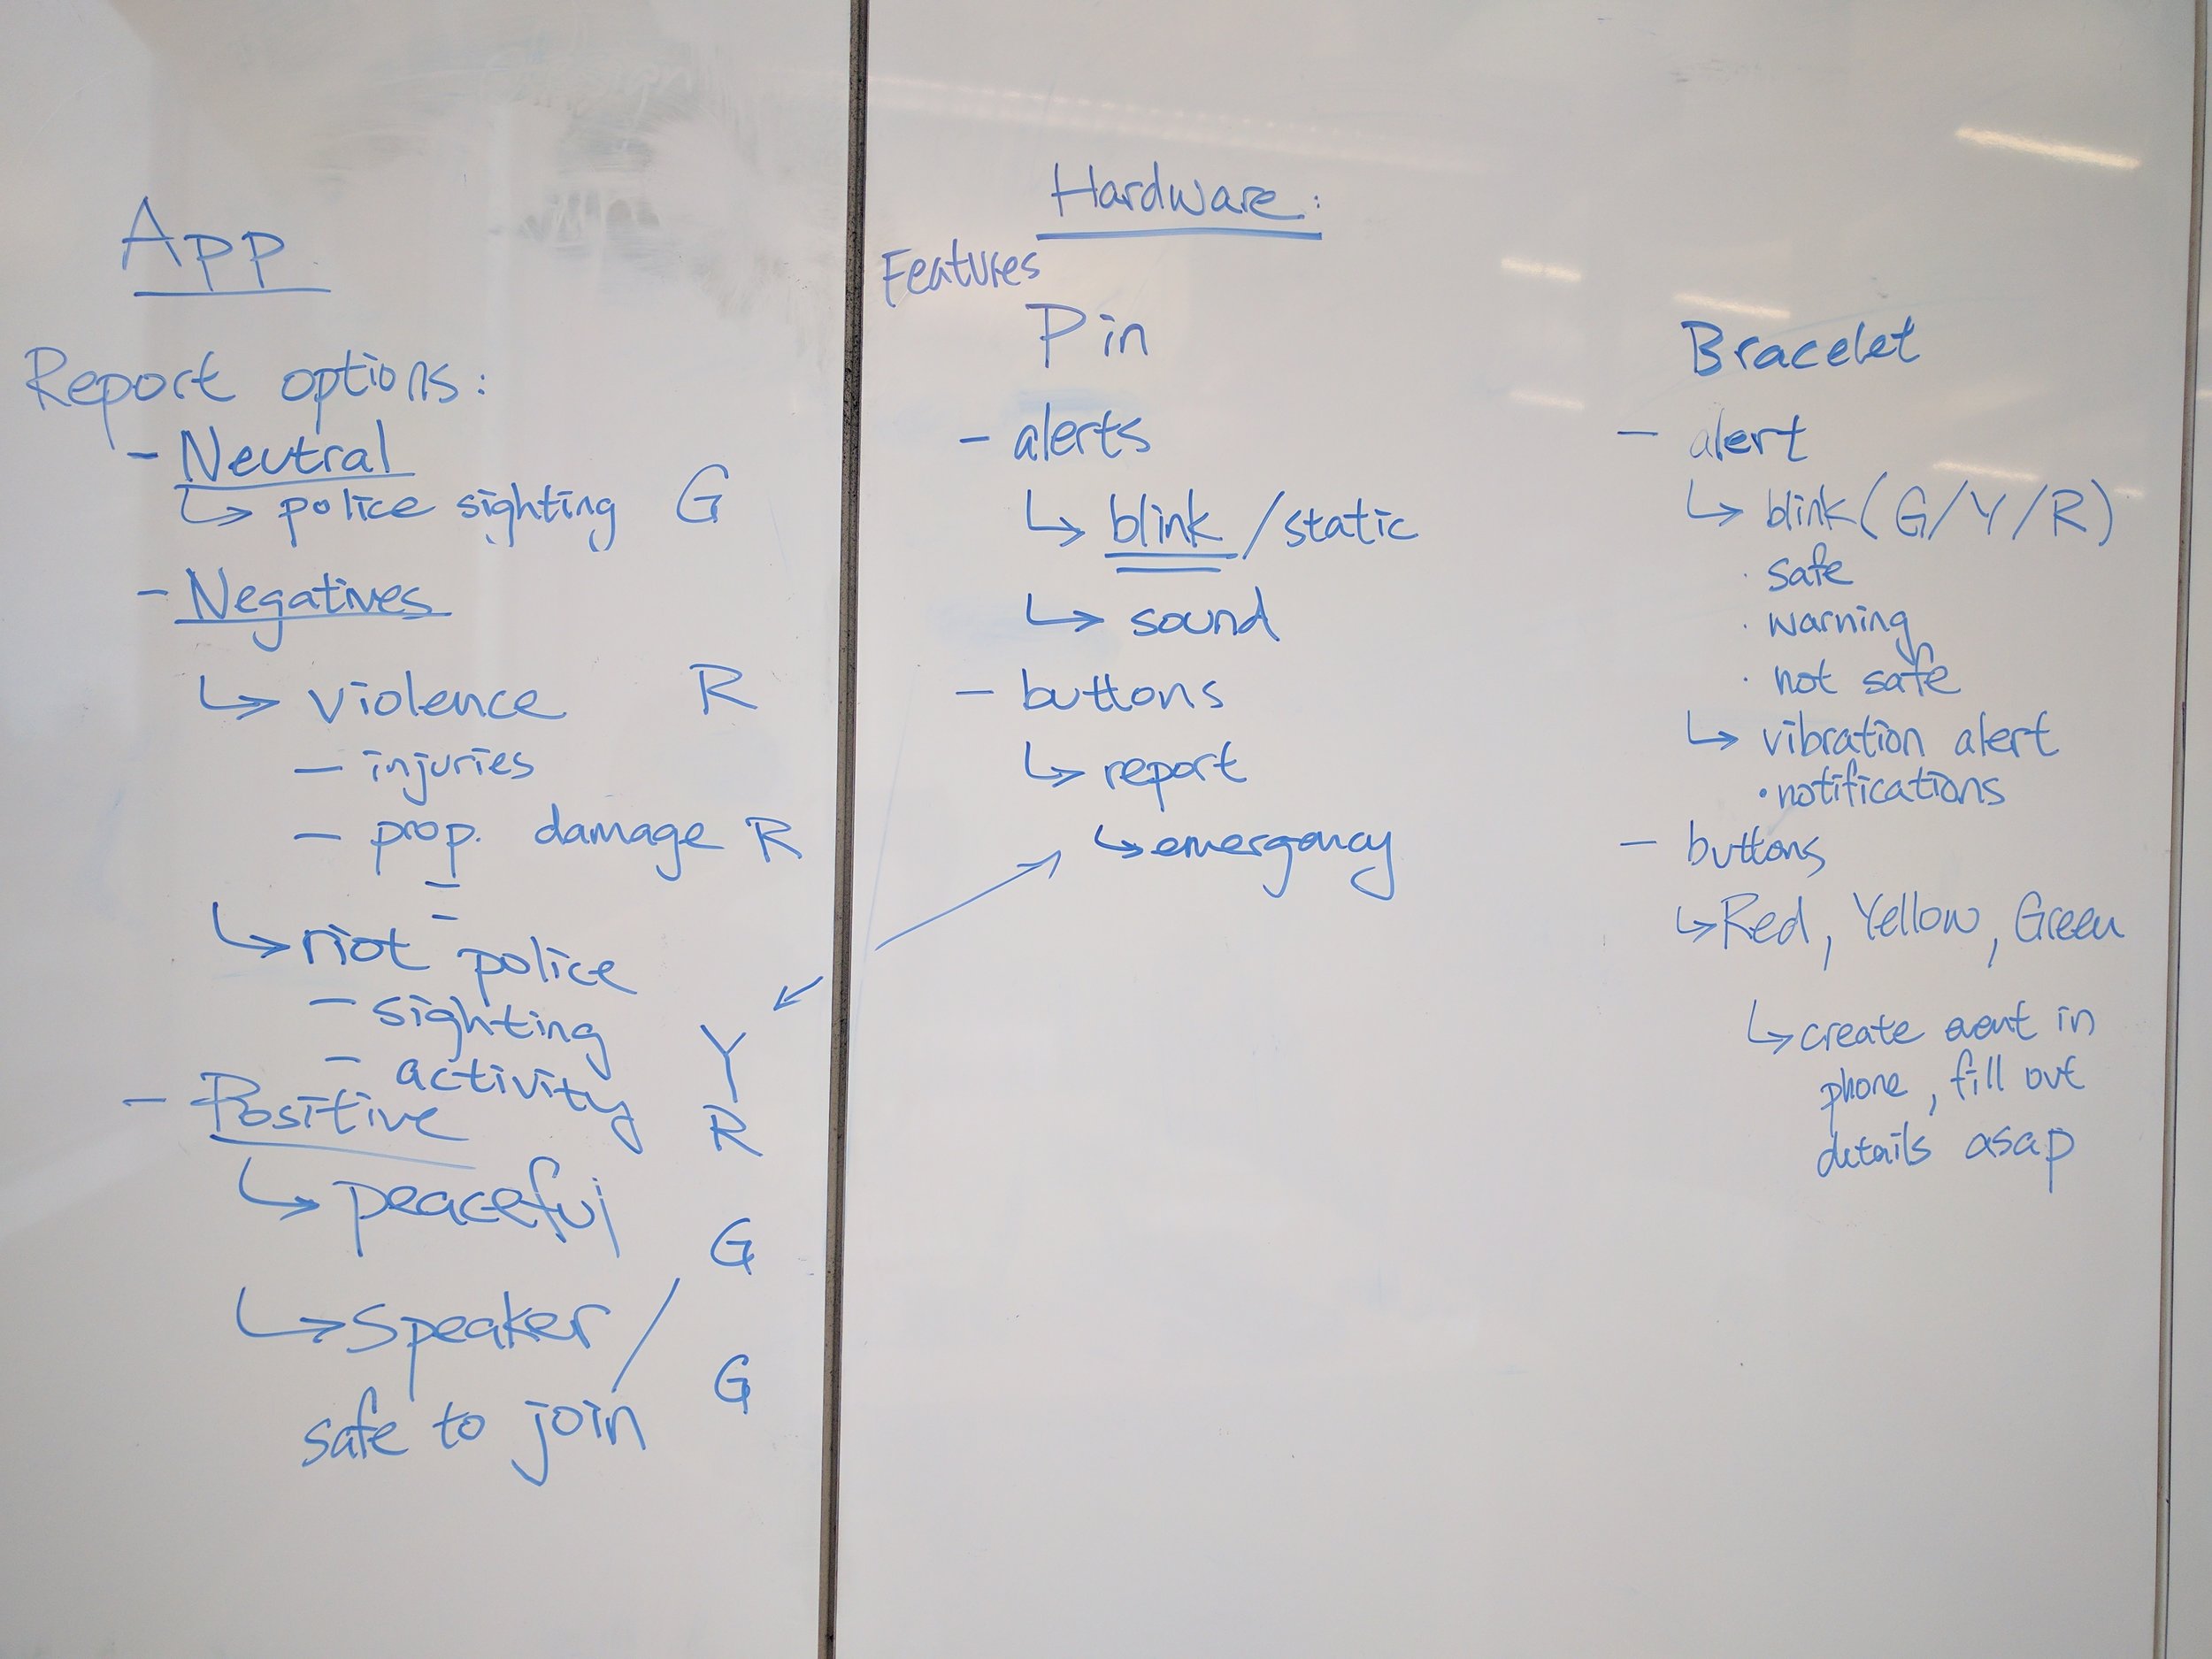 App
Report options:
- Neutral
↳ police sighting G
- Negatives
↳ violence R
- injuries
- prop. damage R
-
-
↳ riot police
- sighting Y
- activity R
- Positive
↳ peaceful G
↳ speaker / G
safe to join
Hardware:
Features
Pin
- alerts
↳ blink / static
↳ sound
- buttons
↳ report
↳ emergency
Bracelet
- alert
↳ blink (G/Y/R)
· safe
· warning
· not safe
↳ vibration alert
• notifications
- buttons
↳ Red, Yellow, Green
↳ create event in
phone, fill out
details asap